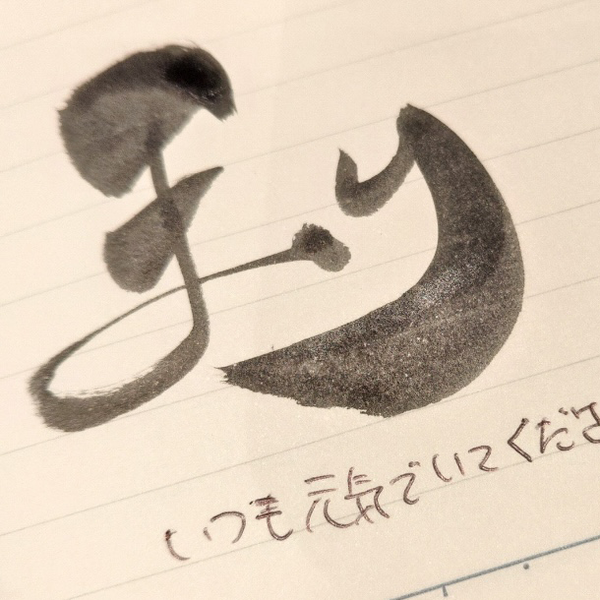 まり
いつも元気でいてくださ